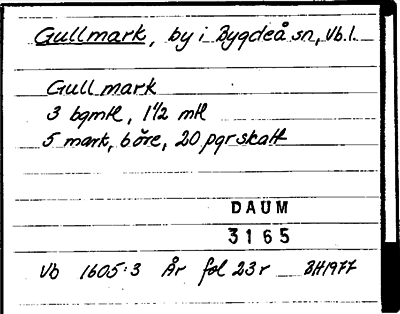 Gullmark, by i Bygdeå sn, Vb.l.
Gullmark
3 bgmtl, 1 1/2 mtl
5 mark, 6 öre, 20 pgr skatt
DAUM
3165
Vb 1605:3 År fol 23r BH1977